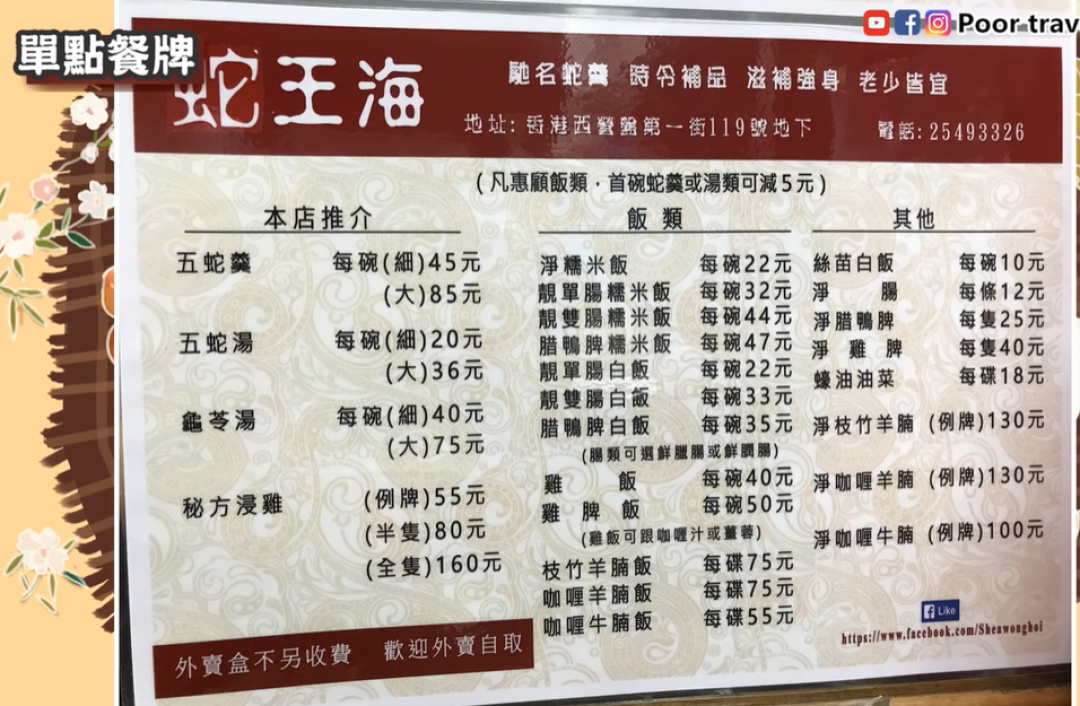 單點餐牌
Poor trav
蛇王海
馳名蛇羹 時令補品 滋補強身 老少皆宜
地址: 香港西營盤第一街119號地下 電話: 25493326
(凡惠顧飯類．首碗蛇羹或湯類可減5元)
本店推介
五蛇羹 每碗(細)45元
(大)85元
五蛇湯 每碗(細)20元
(大)36元
龜苓湯 每碗(細)40元
(大)75元
秘方浸雞 (例牌)55元
(半隻)80元
(全隻)160元
外賣盒不另收費 歡迎外賣自取
飯類
淨糯米飯 每碗22元
靚單腸糯米飯 每碗32元
靚雙腸糯米飯 每碗44元
腊鴨脾糯米飯 每碗47元
靚單腸白飯 每碗22元
靚雙腸白飯 每碗33元
腊鴨脾白飯 每碗35元
(腸類可選鮮臘腸或鮮膶腸)
雞飯 每碗40元
雞脾飯 每碗50元
(雞飯可跟咖喱汁或薑蓉)
枝竹羊腩飯 每碟75元
咖喱羊腩飯 每碟75元
咖喱牛腩飯 每碟55元
其他
絲苗白飯 每碗10元
淨腸 每條12元
淨腊鴨脾 每隻25元
淨雞脾 每隻40元
蠔油油菜 每碟18元
淨枝竹羊腩 (例牌)130元
淨咖喱羊腩 (例牌)130元
淨咖喱牛腩 (例牌)100元
Like
https://www.facebook.com/Sheawonghoi